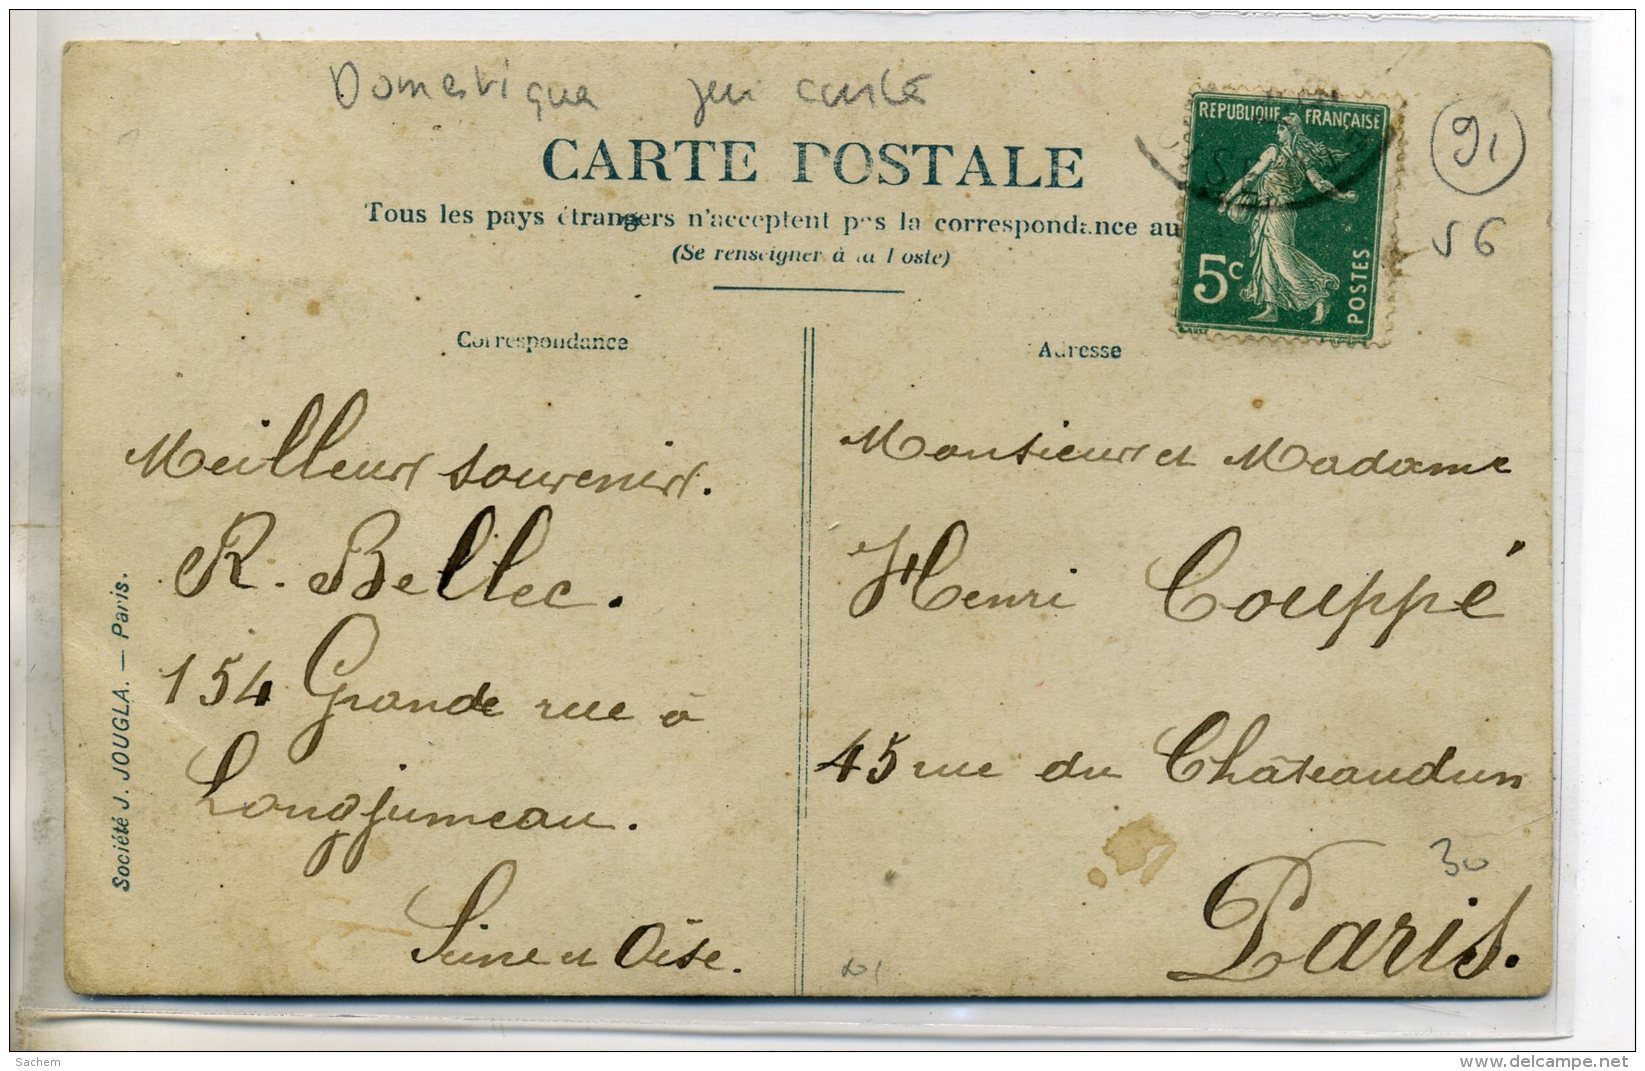 Domestique jeu carte
CARTE POSTALE
Tous les pays étrangers n'acceptent pas la correspondance au
(Se renseigner à la Poste)
REPUBLIQUE FRANÇAISE
5c
POSTES
91
56
Correspondance
Meilleurs souvenirs.
R. Bellec.
154 Grande rue à
Longjumeau.
Seine et Oise.
Société J. JOUGLA. — Paris.
Adresse
Monsieur et Madame
Henri Couppé
45 rue du Châteaudun
30
Paris.
Sachem
delcampe.net